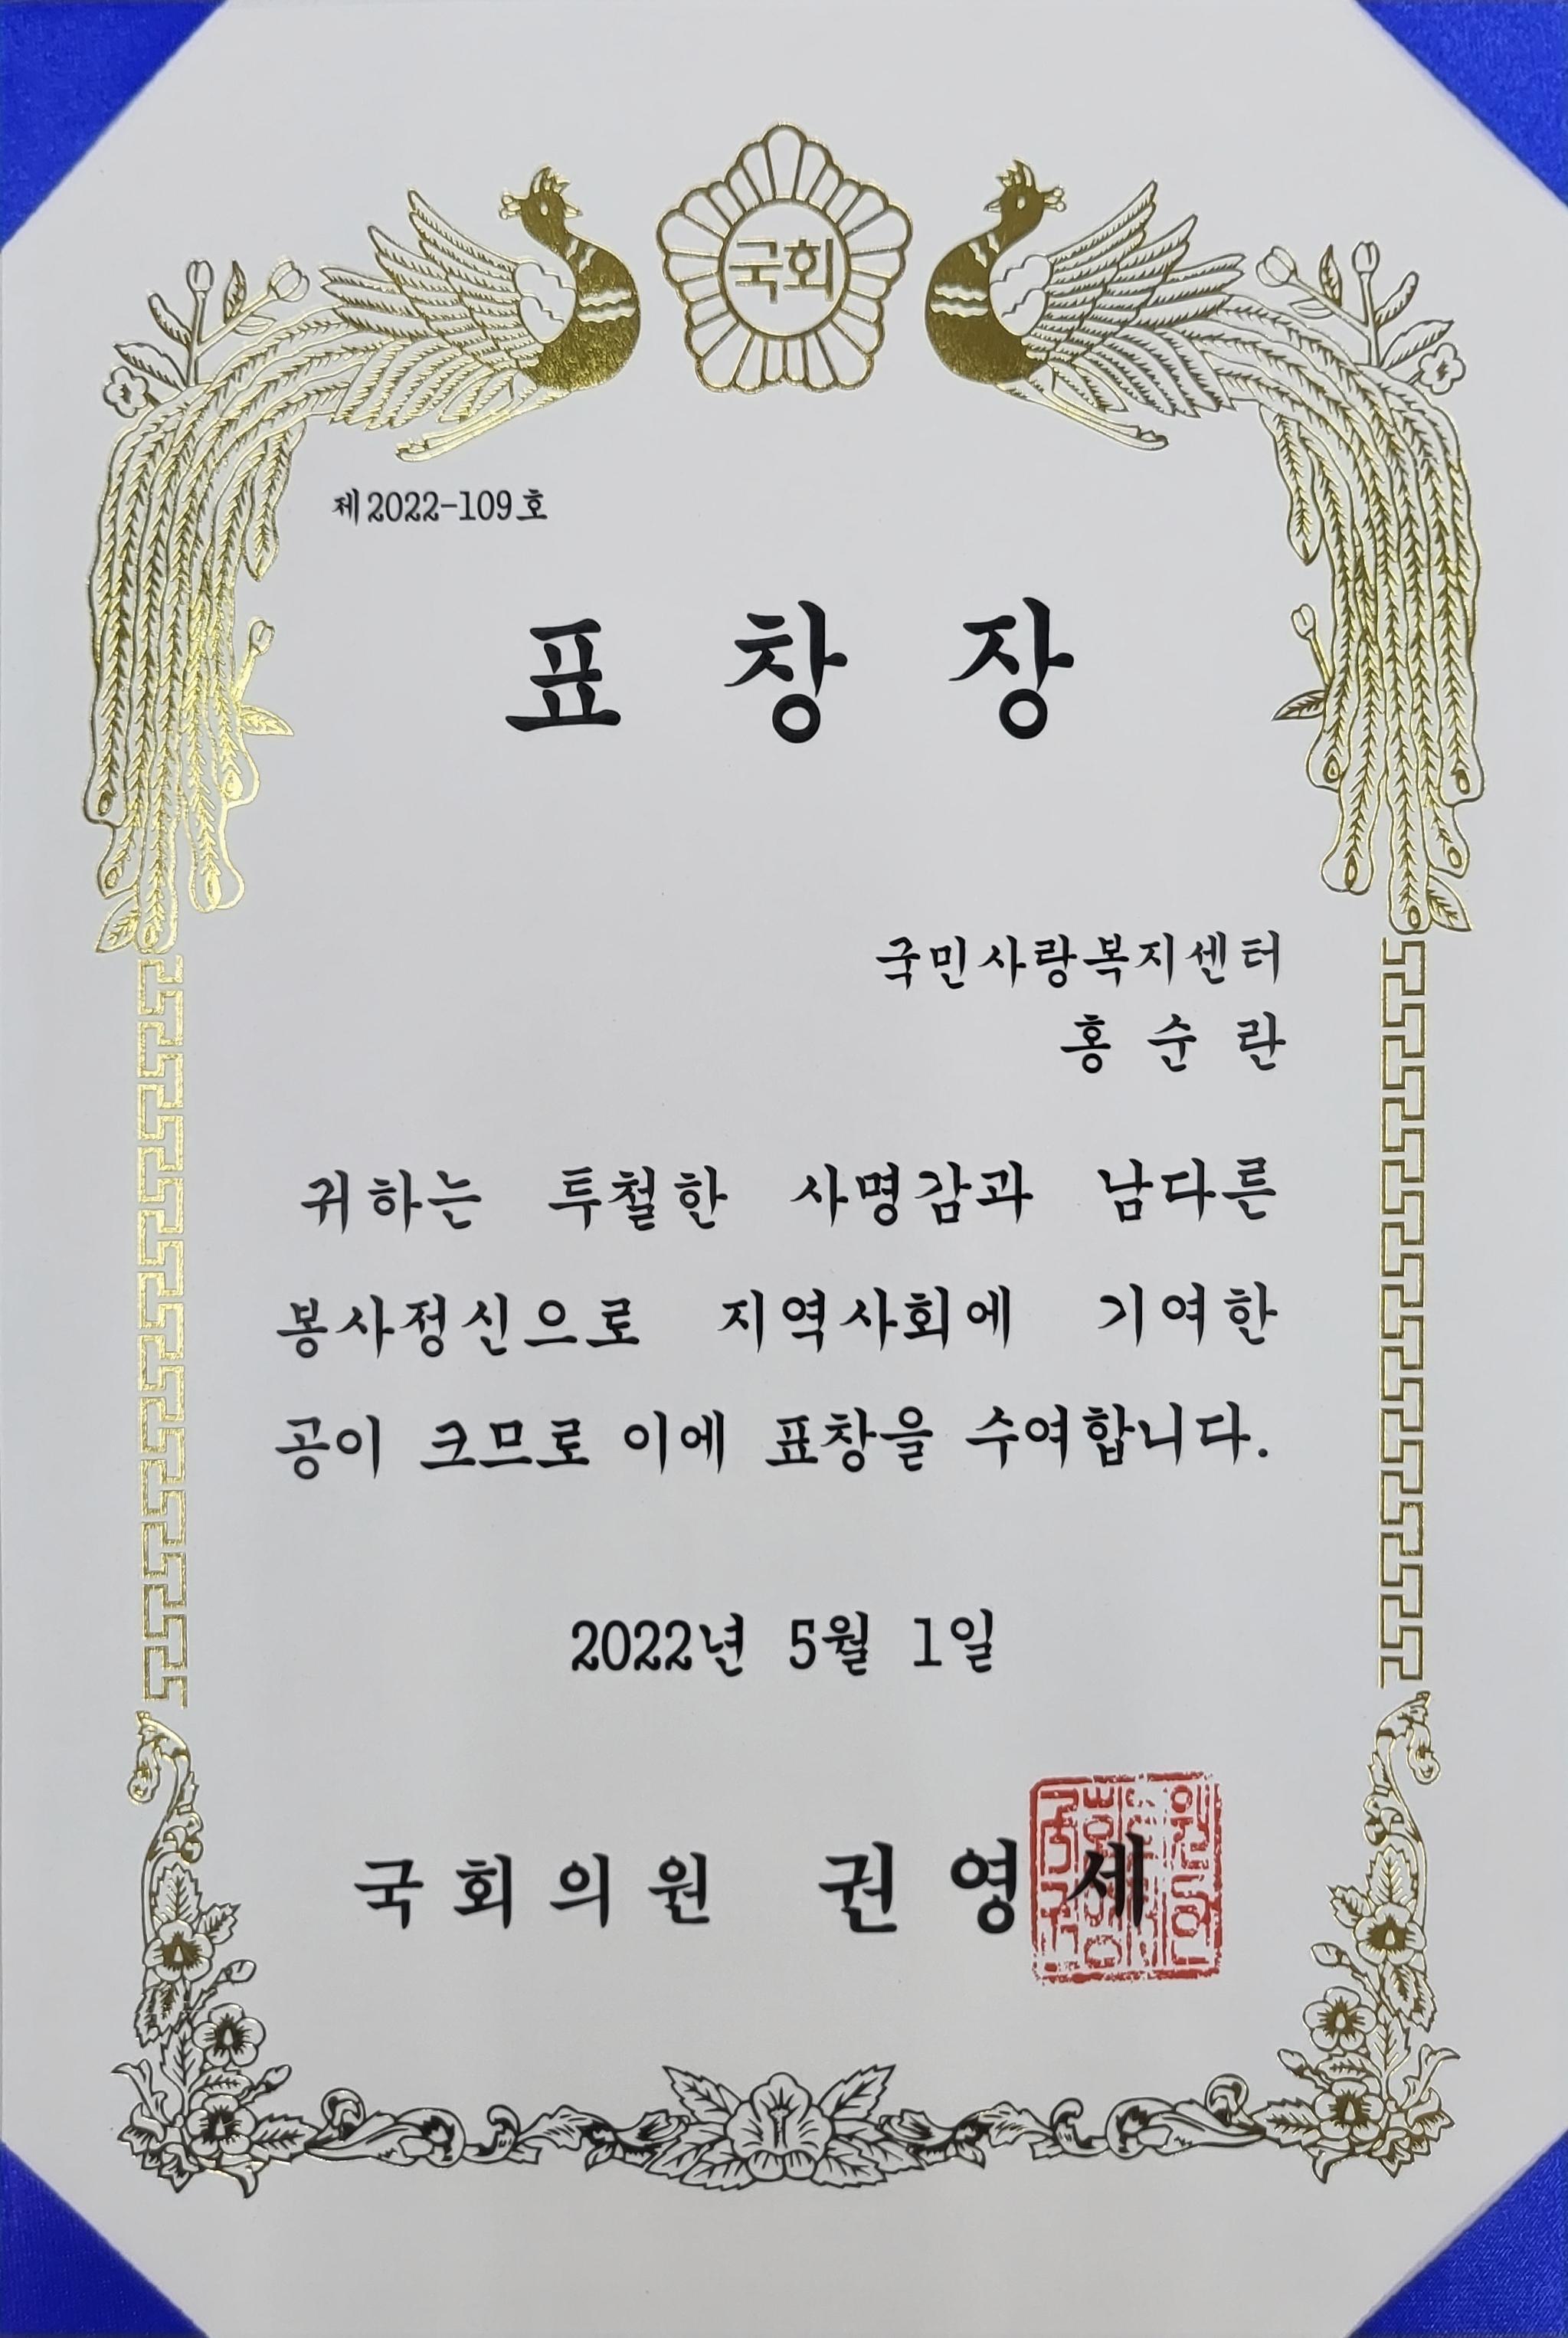 국회
제2022-109호
표 창 장
국민사랑복지센터
홍 순 란
귀하는 투철한 사명감과 남다른
봉사정신으로 지역사회에 기여한
공이 크므로 이에 표창을 수여합니다.
2022년 5월 1일
국회의원 권영세